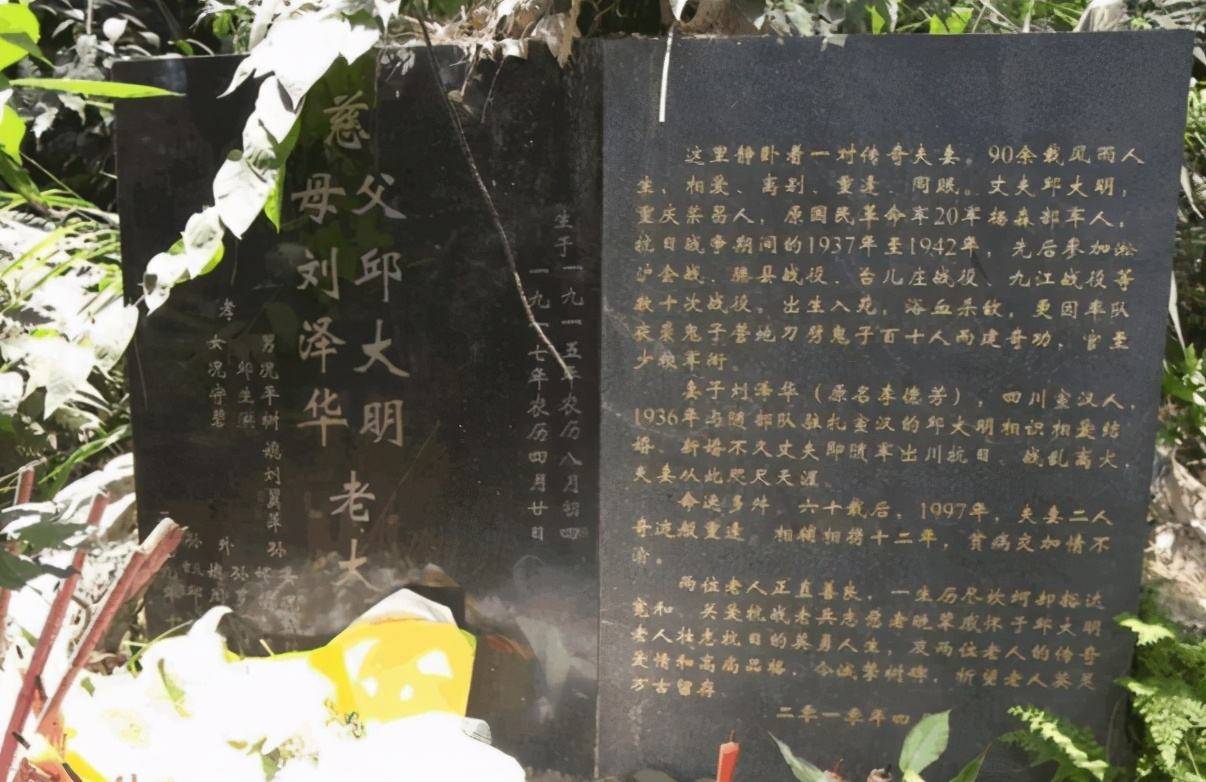 慈
父邱大明
母刘泽华
老大
生于一九一五年农历八月初四
一九一七年农历四月廿日
孝
男况平树 媳刘翼萍 孙
邱生
女况守碧
外
孙
这里静卧着一对传奇夫妻。90余载风雨人
生，相爱、离别、重逢、同眠。丈夫邱大明，
重庆荣昌人，原国民革命军20军杨森部军人，
抗日战争期间的1937年至1942年，先后参加淞
沪会战、滕县战役、台儿庄战役、九江战役等
数十次战役。出生入死，浴血杀敌，更因率队
夜袭鬼子营地刀劈鬼子百十人而建奇功，官至
少校军衔。
妻子刘泽华（原名李德芳），四川宣汉人，
1936年与随部队驻扎宣汉的邱大明相识相爱结
婚。新婚不久丈夫即随军出川抗日，战乱离火，
夫妻从此咫尺天涯。
命运多舛，六十载后，1997年，夫妻二人
奇迹般重逢，相濡相携十二年，贫病交加情不
渝。
两位老人正直善良，一生历尽坎坷却豁达
宽和。关爱抗战老兵志愿者晚辈感怀于邱大明
老人壮志抗日的英勇人生，及两位老人的传奇
爱情和高尚品格，合议筹树碑，祈望老人英灵
万古留存。
二零一零年四